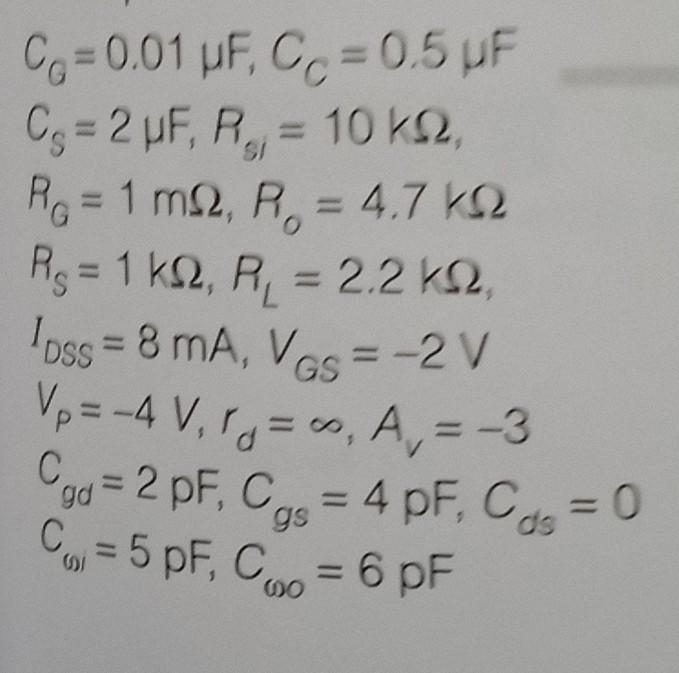 C_G = 0.01 μF, C_C = 0.5 μF
C_S = 2 μF, R_si = 10 kΩ,
R_G = 1 mΩ, R_o = 4.7 kΩ
R_S = 1 kΩ, R_L = 2.2 kΩ,
I_DSS = 8 mA, V_GS = −2 V
V_p = −4 V, r_d = ∞, A_v = −3
C_gd = 2 pF, C_gs = 4 pF, C_ds = 0
C_ωi = 5 pF, C_ωo = 6 pF